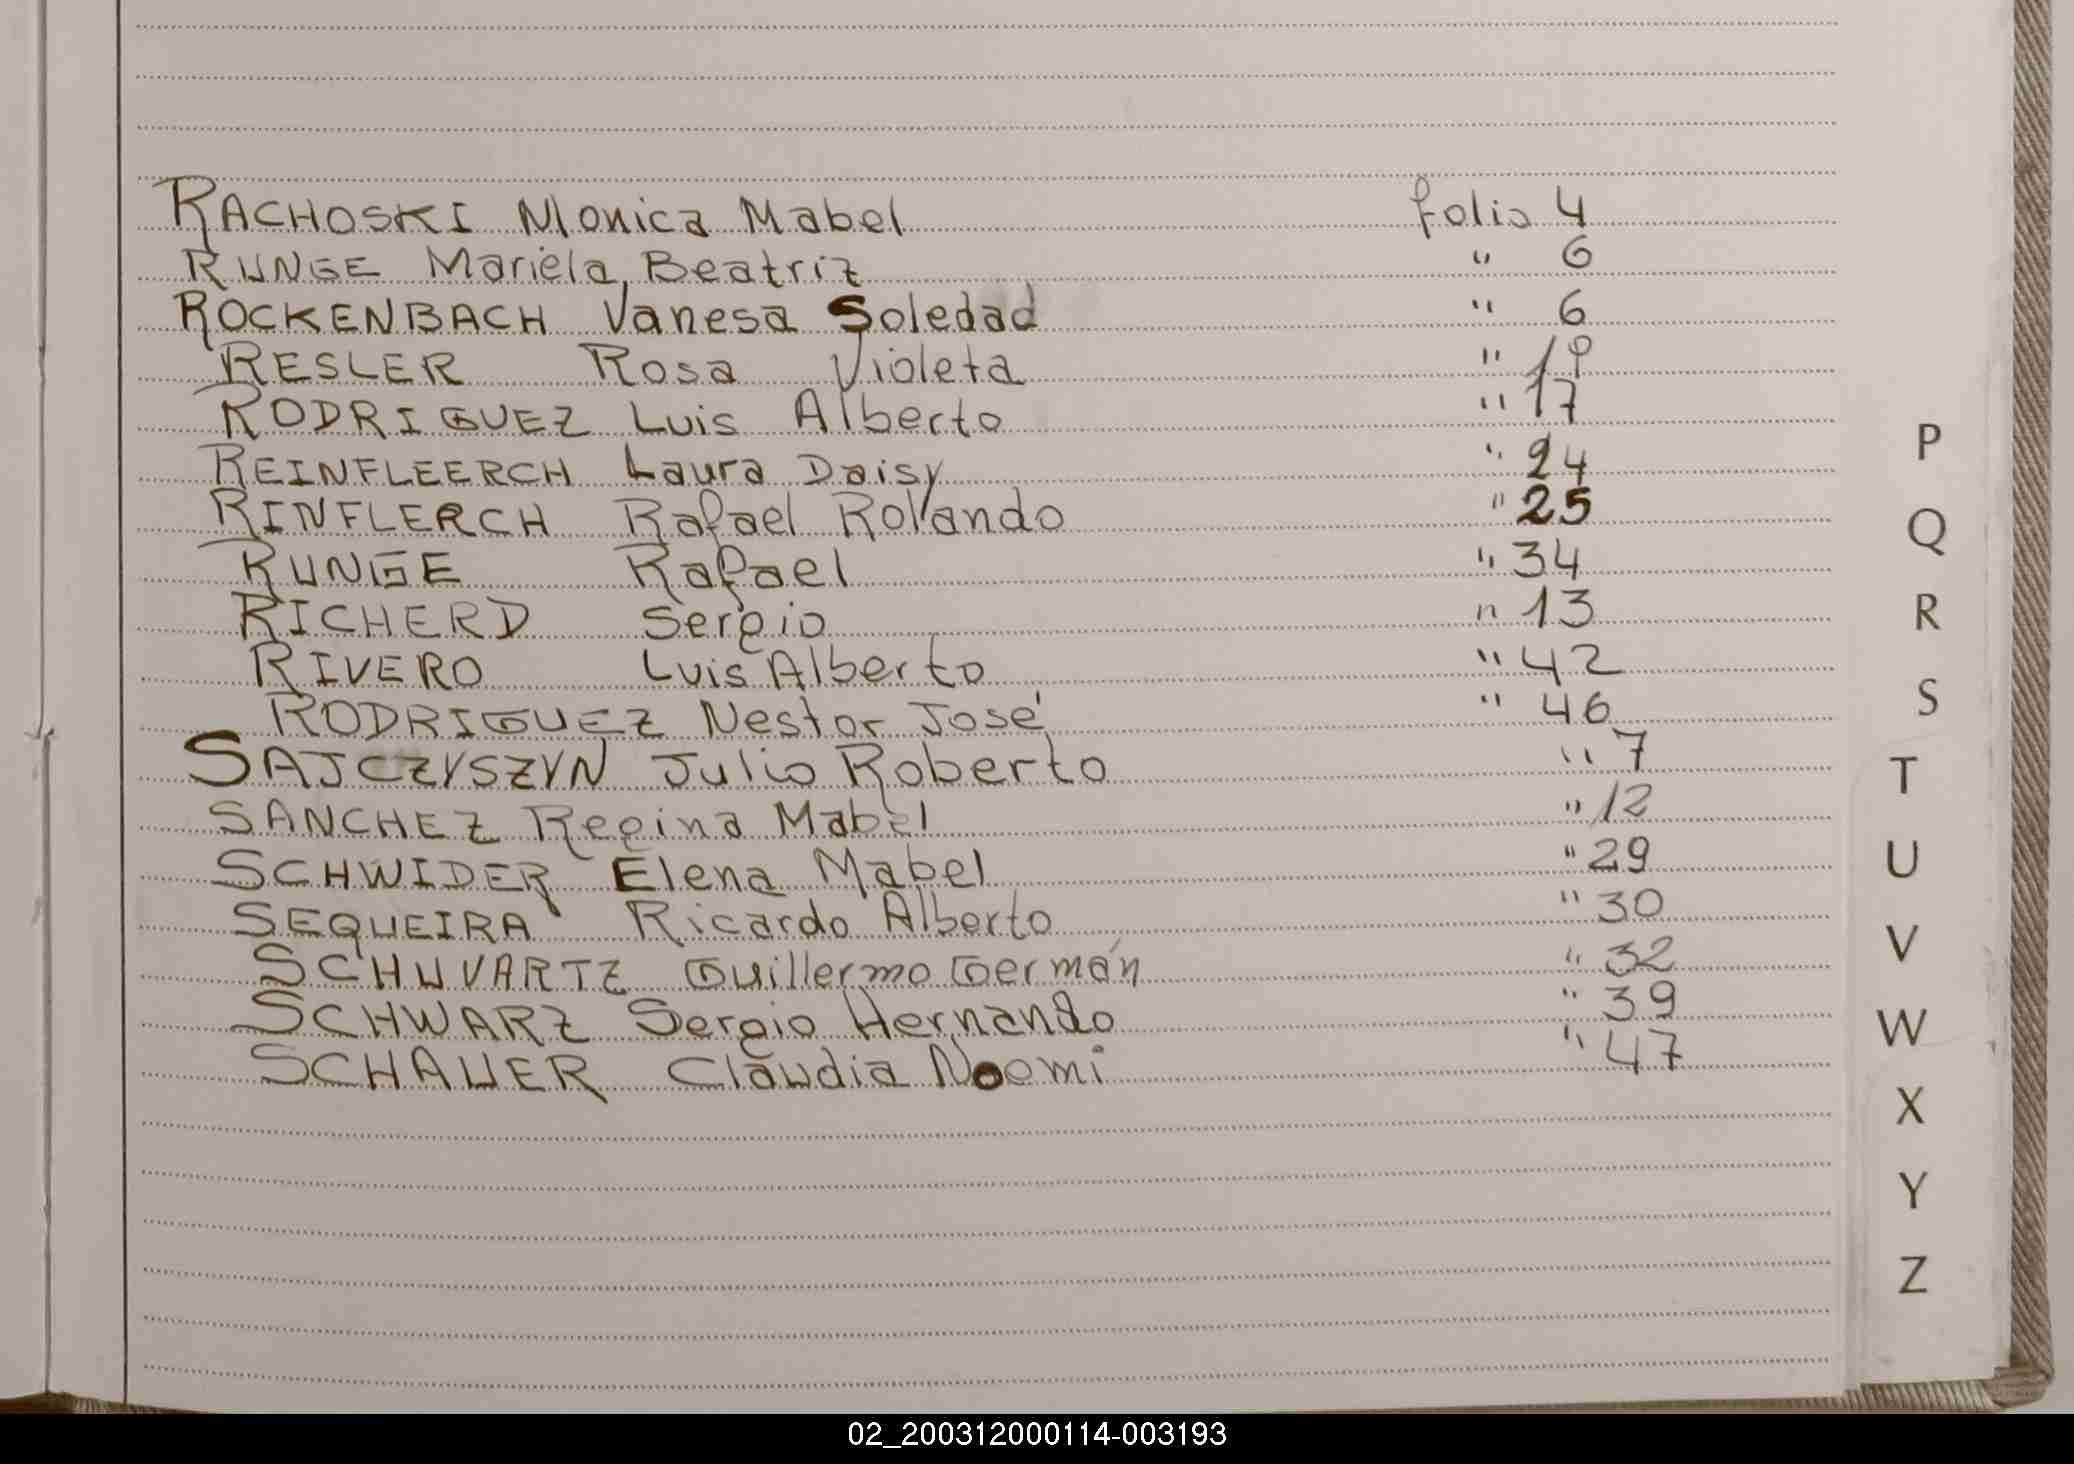 RACHOSKI Monica Mabel folio 4
RUNGE Mariela Beatriz " 6
ROCKENBACH Vanesa Soledad " 6
RESLER Rosa Violeta " 19
RODRIGUEZ Luis Alberto " 17
REINFLEERCH Laura Daisy " 24
RINFLERCH Rafael Rolando " 25
RUNGE Rafael " 34
RICHERD Sergio " 13
RIVERO Luis Alberto " 42
RODRIGUEZ Nestor José " 46
SAJCZYSZYN Julio Roberto " 7
SANCHEZ Regina Mabel " 12
SCHWIDER Elena Mabel " 29
SEQUEIRA Ricardo Alberto " 30
SCHWVARTZ Guillermo Germán " 32
SCHWARZ Sergio Hernando " 39
SCHAUER Claudia Noemi " 47
P
Q
R
S
T
U
V
W
X
Y
Z
02_200312000114-003193